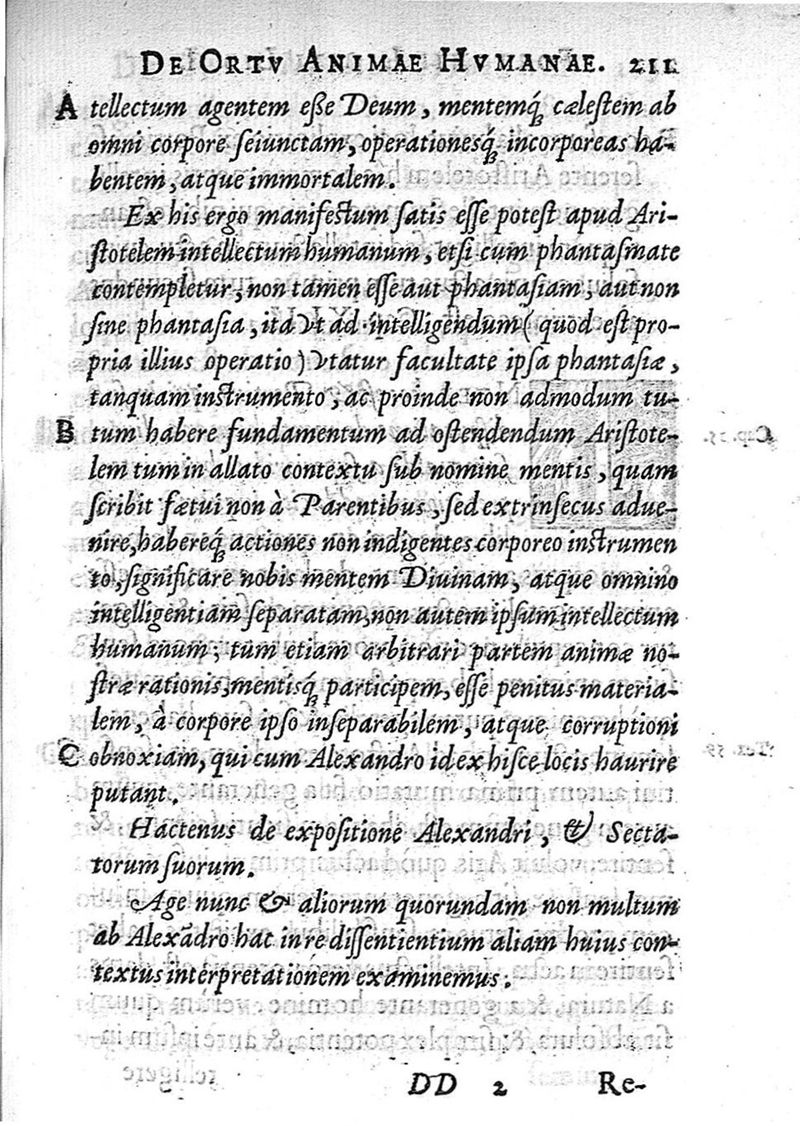 DE ORTV ANIMAE HVMANAE. 211
A tellectum agentem eße Deum, mentemq́ꝫ cælestem ab
omni corpore seiunctam, operationesq́ꝫ incorporeas ha-
bentem, atque immortalem.
Ex his ergo manifestum satis esse potest apud Ari-
stotelem intellectum humanum, etsi cum phantasmate
contempletur, non tamen esse aut phantasiam, aut non
sine phantasia, ita vt ad intelligendum (quod est pro-
pria illius operatio) vtatur facultate ipsa phantasiæ,
tanquam instrumento, ac proinde non admodum tu-
B tum habere fundamentum ad ostendendum Aristote-
lem tum in allato contextu sub nomine mentis, quam
scribit fætui non à Parentibus, sed extrinsecus adue-
nire, habereq́ꝫ actiones non indigentes corporeo instrumen
to, significare nobis mentem Diuinam, atque omnino
intelligentiam separatam, non autem ipsum intellectum
humanum; tum etiam arbitrari partem animæ no-
stræ rationis, mentisq́ꝫ participem, esse penitus materia-
lem, à corpore ipso inseparabilem, atque corruptioni
C obnoxiam, qui cum Alexandro id ex hisce locis haurire
putant.
Hactenus de expositione Alexandri, & Secta-
torum suorum.
Age nunc & aliorum quorundam non multum
ab Alexãdro hac in re dissentientium aliam huius con-
textus interpretationem examinemus.
DD 2 Re-